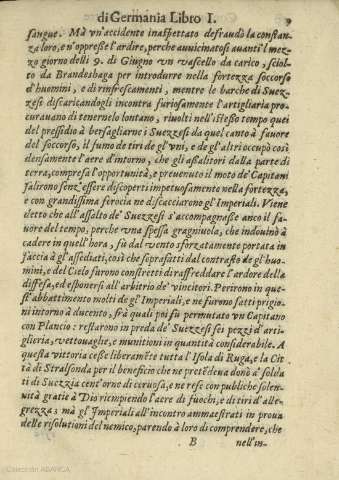 di Germania Libro I. 9
sangue. Mà vn'accidente inaspettato defraudò la constan-
za loro, e n'oppresse l'ardire, perche auuicinatosi auanti'l mez-
zo giorno delli 9. di Giugno vn vascello da carico, sciol-
to da Brandeshaga per introdurre nella fortezza soccorso
d'huomini, e di rinfrescamenti, mentre le barche di Suez-
zesi discaricandogli incontra furiosamente l'artigliaria pro-
curauano di tenernelo lontano, riuolti nell'istesso tempo quei
del pressidio à bersagliarne i Suezzesi da quel canto à fauore
del soccorso, il fumo de tiri de gl'vni, e de gl'altri occupò così
densamente l'aere d'intorno, che gli assalitori dalla parte di
terra, compresa l'opportunità, e preuenuto il moto de' Capitani
salirono senz'essere discoperti impetuosamente nella fortezza,
e con grandissima ferocia ne discacciarono gl'Imperiali. Viene
detto che all'assalto de' Suezzesi s'accompagnasse anco il fa-
uore del tempo, perche vna spessa gragniuola, che indouinò à
cadere in quell'hora, fù dal vento sforzatamente portata in
faccia à gl'assediati, così che soprafatti dal contrasto de gl'huo-
mini, e del Cielo furono constretti di raffreddare l'ardore della
diffesa, ed esponersi all'arbitrio de' vincitori. Perirono in que-
st'abbattimento molti de gl'Imperiali, e ne furono fatti prigio-
ni intorno à ducento, frà quali poi fù permutato vn Capitano
con Plancio: restarono in preda de' Suezzesi sei pezzi d'arti-
glieria, vettouaglie, e munitioni in quantità considerabile. A
questa vittoria cesse liberamēte tutta l'Isola di Ruga, e la Cit
tà di Stralsonda per il beneficio che ne pretēdeua donò a' solda
ti di Suezzia cent'orne di ceruosa, e ne rese con publiche solen-
uità gratie à Dio riempiendo l'aere di fuochi, e di tiri d'alle-
grezza; mà gl'Imperiali all'incontro ammaestrati in proua
delle risolutioni del nemico, parendo à loro di comprendere, che
B nell'in-
Colección ABANCA